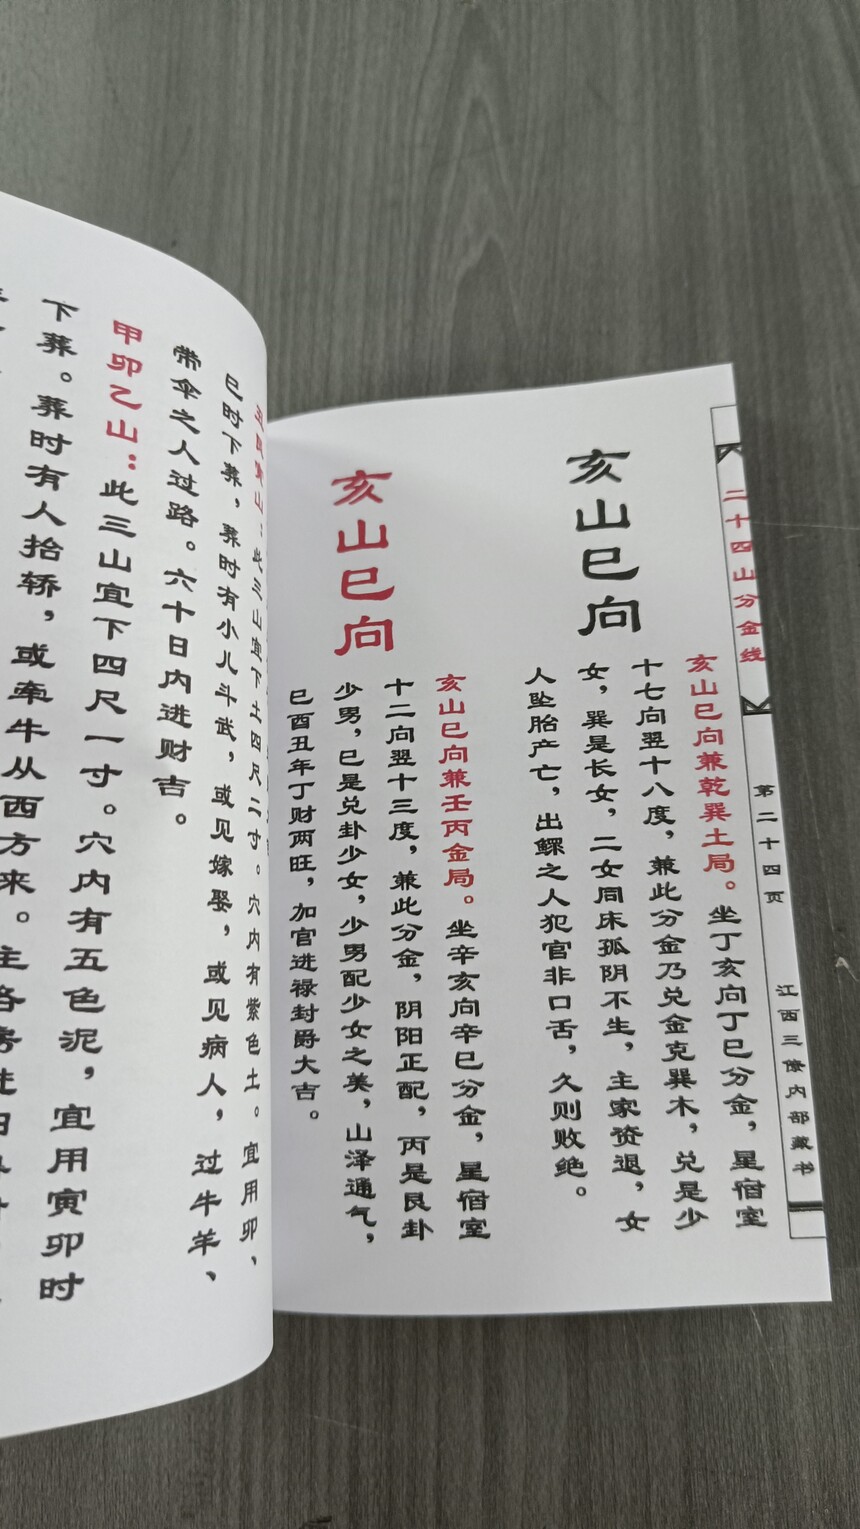 二十四山分金线
第二十四页
江西三僚内部藏书
亥山巳向
亥山巳向兼乾巽土局。坐丁亥向丁巳分金，星宿室
十七向翌十八度，兼此分金乃兑金克巽木，兑是少
女，巽是长女，二女同床孤阴不生，主家资退，女
人坠胎产亡，出鳏之人犯官非口舌，久则败绝。
亥山巳向
亥山巳向兼壬丙金局。坐辛亥向辛巳分金，星宿室
十二向翌十三度，兼此分金，阴阳正配，丙是艮卦
少男，巳是兑卦少女，少男配少女之美，山泽通气，
巳酉丑年丁财两旺，加官进禄封爵大吉。
山：此三山宜下土四尺二寸。穴内有紫色土。宜用卯、
巳时下葬，葬时有小儿斗武，或见嫁娶，或见病人，过牛羊、
带伞之人过路。六十日内进财吉。
甲卯乙山：此三山宜下四尺一寸。穴内有五色泥，宜用寅卯时
下葬。葬时有人抬轿，或牵牛从西方来。主各房进田